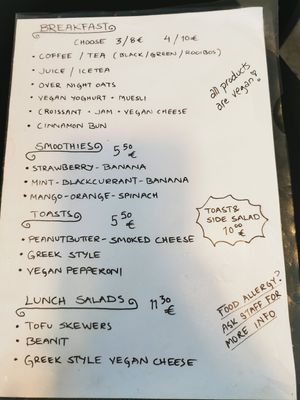 BREAKFAST
CHOOSE 3/8€ 4/10€
• COFFEE / TEA (BLACK/GREEN/ROOIBOS)
• JUICE / ICETEA
• OVER NIGHT OATS
• VEGAN YOGHURT + MUESLI
• CROISSANT + JAM + VEGAN CHEESE
• CINNAMON BUN
all products
are vegan!
SMOOTHIES 5,50 €
• STRAWBERRY - BANANA
• MINT - BLACKCURRANT - BANANA
• MANGO - ORANGE - SPINACH
TOASTS 5,50 €
• PEANUTBUTTER - SMOKED CHEESE
• GREEK STYLE
• VEGAN PEPPERONI
TOAST &
SIDE SALAD
10,00 €
LUNCH SALADS 11,30 €
• TOFU SKEWERS
• BEANIT
• GREEK STYLE VEGAN CHEESE
FOOD ALLERGY?
ASK STAFF FOR
MORE INFO